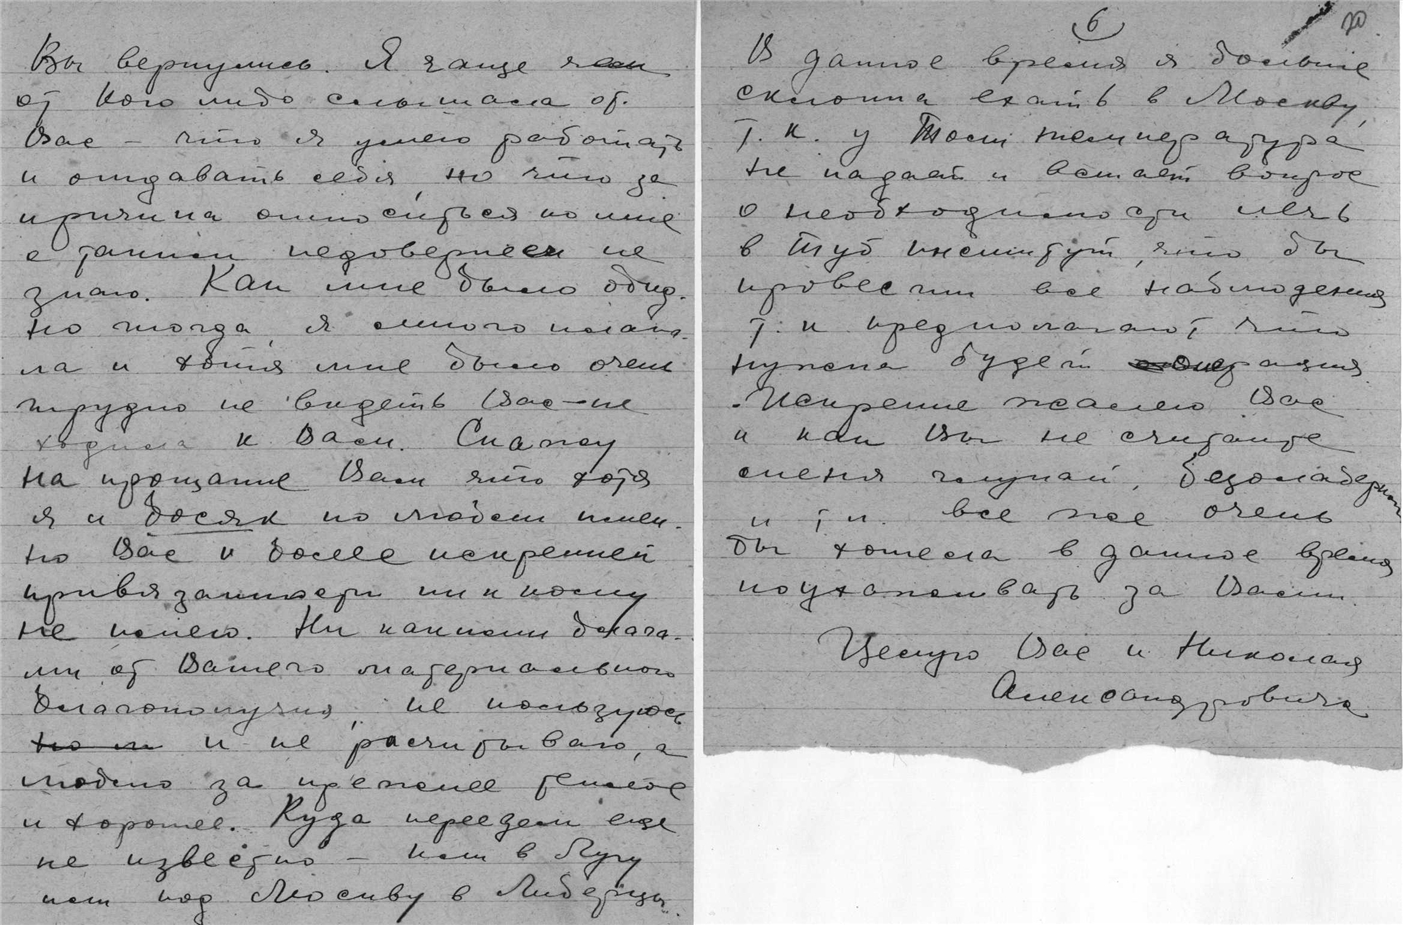 Вы вернулись. Я чаще чем
от кого либо слышала от
Вас – что я умею работать
и отдавать себя, но что за
причина относиться ко мне
с таким недоверием не
знаю. Как мне было обид-
но тогда, я много плака-
ла и хотя мне было очень
трудно не видеть Вас – не
ходила к Вам. Скажу
на прощание Вам что хотя
я и босяк но люблю имен-
но Вас и более искренней
привязанности ни к кому
не имею. Ни какими блага-
ми от Вашего материального
благополучия, не пользуюсь
и не расчитываю, а
люблю за прежнее теплое
и хорошее. Куда переедем еще
не известно – или в Лугу
или под Москву в Люберцы.
6
20
В данное время я больше
склонна ехать в Москву,
т. к. у Таси температура
не падает и встает вопрос
о необходимости лечь
в Туб институт, что бы
провести все наблюдения
т. к предполагают, что
нужна будет операция.
Искренне жалею Вас
и как Вы не считаете
меня глупой, безалаберной
и т. п. все же очень
бы хотела в данное время
поухаживать за Вами.
Целую Вас и Николая
Александровича